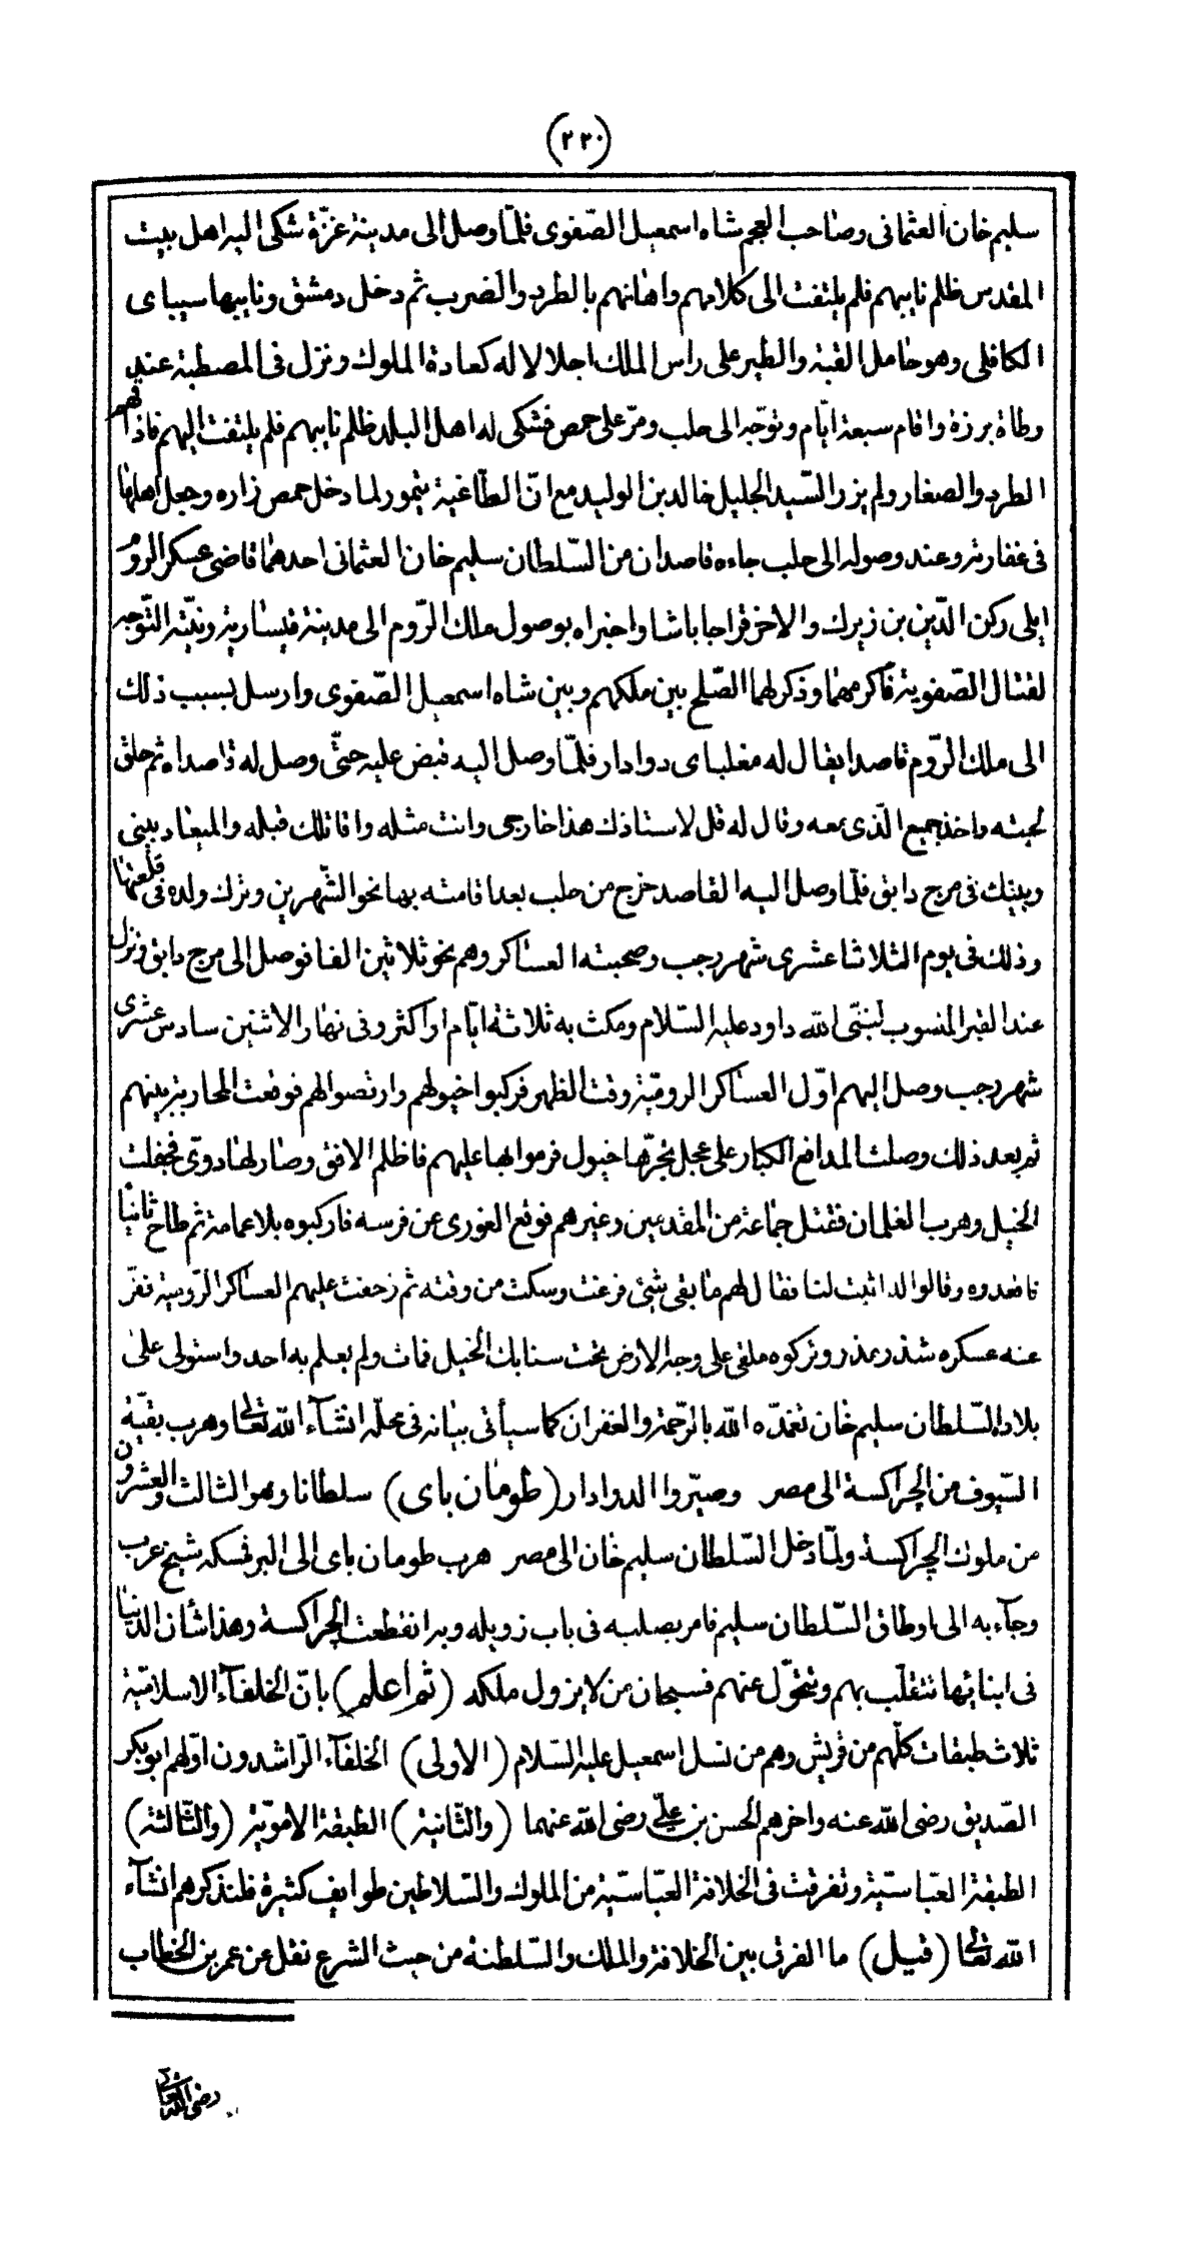 (٢٢٠)
سليم خان العثمانى وصاحب العجم شاه اسمعيل الصّفوى فلمّا وصل الى مدينة غزّة شكى اليه اهل بيت
المقدس ظلم نايبهم فلم يلتفت الى كلامهم واهانهم بالطرد والضرب ثم دخل دمشق ونايبها سيباى
الكافلى وهو حامل القبة والطير على راس الملك اجلالا له كعادة الملوك ونزل فى المصطبة عند
وطاة برزة واقام سبعة ايّام وتوجّه الى حلب ومرّ على حمص فشكى له اهل البلد ظلم نايبهم فلم يلتفت اليهم فاذاقهم
الطرد والصغار ولم يزر السّيد الجليل خالد بن الوليد مع انّ الطّاغية تيمور لما دخل حمص زاره وجعل اهلها
فى غفارته وعند وصوله الى حلب جاءه قاصدان من السّلطان سليم خان العثمانى احدهما قاضى عسكر الروم
ايلى ركن الدّين بن زيرك والاخر قراجا باشا واخبراه بوصول ملك الرّوم الى مدينة قيسارية ونيّته التّوجه
لقتال الصّفوية فأكرمهما وذكر لهما الصّلح بين ملكهم وبين شاه اسمعيل الصّفوى وارسل بسبب ذلك
الى ملك الرّوم قاصدا يقال له مغلباى دوادار فلمّا وصل اليه قبض عليه حتّى وصل له قاصداه ثم حلق
لحيته واخذ جميع الّذى معه وقال له قل لاستاذك هذا خارجى وانت مثله واقاتلك قبله والميعاد بينى
وبينك فى مرج دابق فلمّا وصل اليه القاصد خرج من حلب بعد اقامته بها نحو الشّهرين وترك ولده فى قلعتها
وذلك فى يوم الثلاثا عشرى شهر رجب وصحبته العساكر وهم نحو ثلاثين الفا فوصل الى مرج دابق ونزل
عند القبر المنسوب لنبىّ الله داود عليه السّلام ومكث به ثلاثة ايّام او اكثر وفى نهار الاثنين سادس عشرى
شهر رجب وصل اليهم اوّل العساكر الروميّة وقت الظهر فركبوا خيولهم وارتصوا لهم فوقعت المحاربة بينهم
ثم بعد ذلك وصلت المدافع الكبار على عجل تجرّها خيول فرموا بها عليهم فاظلم الافق وصار لها دوىّ فجفلت
الخيل وهرب الغلمان فقتل جماعة من المقدمين وغيرهم فوقع الغورى عن فرسه فاركبوه بلا عمامة ثم طاح ثانيا
فاقعدوه وقالوا له اثبت لنا فقال لهم ما بقى شئ فرغت وسكت من وقته ثم زحفت عليهم العساكر الرّومية ففرّ
عنه عسكره شذر مذر وتركوه ملقى على وجه الارض تحت سنابك الخيل فمات ولم يعلم به احد واستولى على
بلاده السّلطان سليم خان تغمّده الله بالرّحمة والغفران كما سيأتى بيانه فى محلّه انشآء الله تعالى وهرب بقيّة
السّيوف من الچراكسة الى مصر وصيّروا الدوادار (طومان باى) سلطانا وهو الثالث والعشرون
من ملوك الچراكسة ولمّا دخل السّلطان سليم خان الى مصر هرب طومان باى الى البر فمسكه شيخ عرب
وجآء به الى اوطاق السّلطان سليم فامر بصلبه فى باب زويله وبه انقطعت الچراكسة وهذا شأن الدنيا
فى ابنائها تتقلّب بهم وتتحوّل عنهم فسبحان من لا يزول ملكه (ثم اعلم) بانّ الخلفآء الاسلاميّة
ثلاث طبقات كلّهم من قريش وهم من نسل اسمعيل عليه السّلام (الاولى) الخلفآء الرّاشدون اوّلهم ابو بكر
الصّديق رضى الله عنه واخرهم الحسن بن علىّ رضى الله عنهما (والثّانية) الطبقة الامويّة (والثّالثة)
الطبقة العبّاسيّة وتفرقت فى الخلافة العبّاسيّة من الملوك والسّلاطين طوايف كثيرة فلنذكرهم انشآء
الله تعالى (قيل) ما الفرق بين الخلافة والملك والسّلطنة من حيث الشرع نقل عن عمر بن الخطاب
رضى الله تعالى